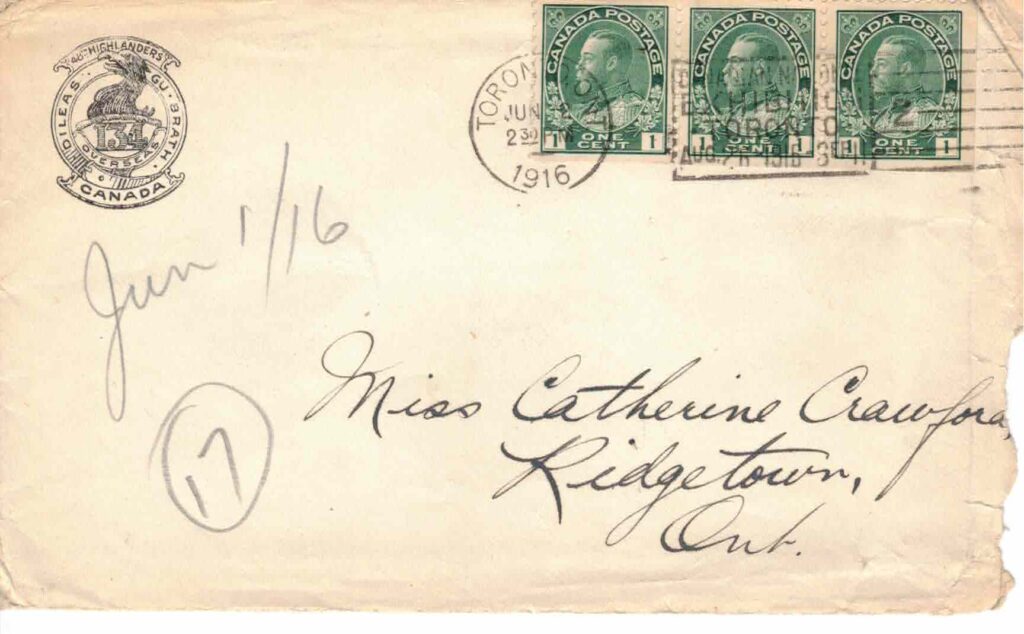 48TH HIGHLANDERS
DILEAS GU BRATH
134
OVERSEAS
CANADA
CANADA POSTAGE
ONE CENT
1 1
CANADA POSTAGE
ONE CENT
1 1
CANADA POSTAGE
ONE CENT
1 1
TORONTO
JUN 2
230
1916
TORONTO
AUG. 26 1916 SEP. 11
2
Jun 1/16
17
Miss Catherine Crawford,
Ridgetown,
Ont.